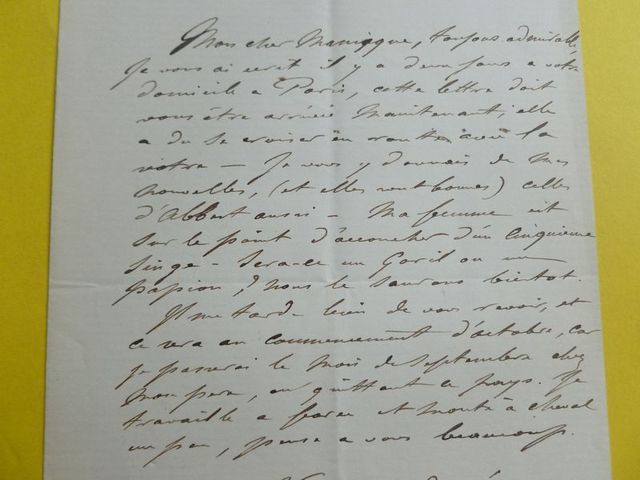 Mon cher Manigque, toujours admirable,
Je vous ai ecrit il y a deux jours a votre
domicile a Paris, cette lettre doit
vous être arrivée maintenant; elle
a du se croiser en route avec la
votre — Je vous y donnais de mes
nouvelles, (et elles sont bonnes) celles
d'Abbert aussi — Ma femme est
sur le point d'accoucher d'un cinquieme
singe — sera-ce un Goril ou un
papion, nous le saurons bientot.
Il me tarde bien de vous revoir, et
ce sera au commencement d'octobre, car
je passerai le mois de septembre chez
mon pere, en quittant ce pays. Je
travaille a force et monte à cheval
un peu, pense a vous beaucoup.